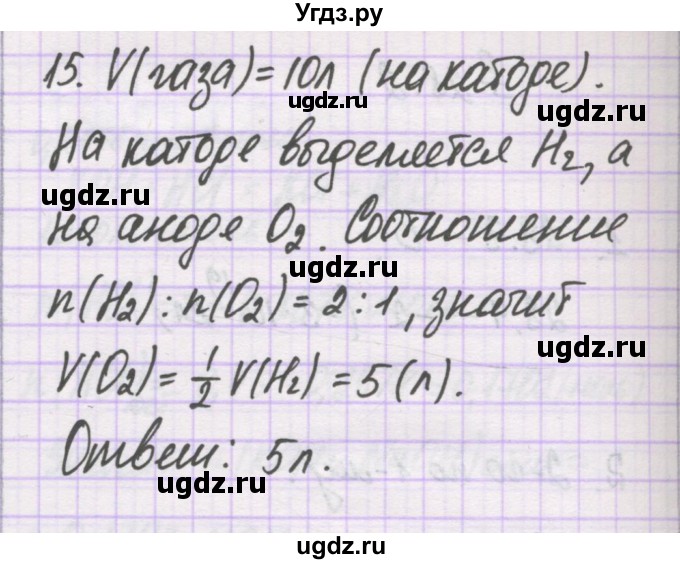 Угдз.ру
15. V(газа)=10л (на катоде).
ugdz.ru ugdz.ru
На катоде выделяется H₂, а
ugdz.ru
на аноде O₂. Соотношение
ugdz.ru
n(H₂):n(O₂)=2:1, значит
ugdz.ru
V(O₂)=1/2 V(H₂)=5(л).
Ответ: 5л.
ugdz.ru ugdz.ru
ugdz.ru